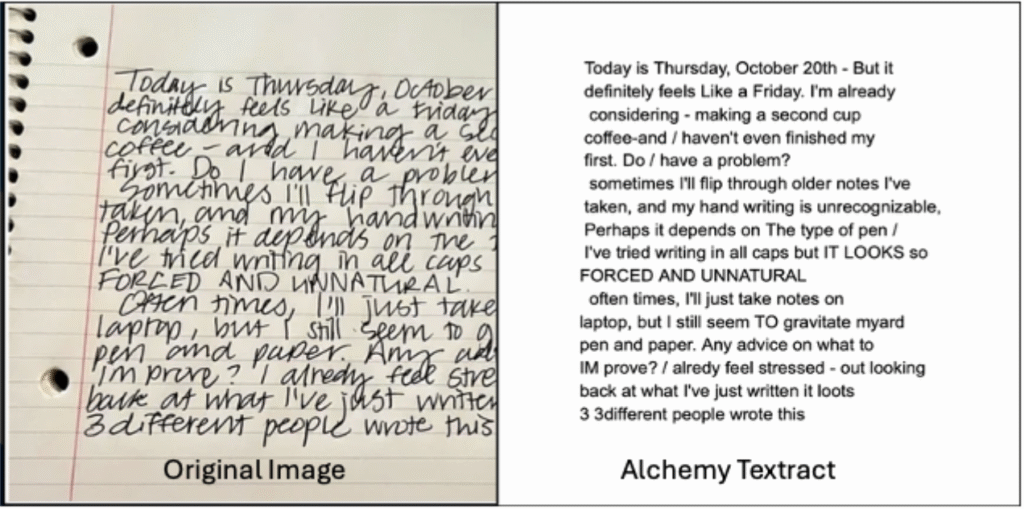 Today is Thursday, October
definitely feels like a Friday
considering making a sec
coffee - and I haven't eve
first. Do I have a problem
Sometimes I'll flip through
taken, and my handwritin
Perhaps it depends on the
I've tried writing in all caps
FORCED AND UNNATURAL.
Often times, I'll just take
laptop, but I still seem to g
pen and paper. Any ad
improve? I alredy feel stre
back at what I've just written
3 different people wrote this
Original Image
Today is Thursday, October 20th - But it
definitely feels Like a Friday. I'm already
considering - making a second cup
coffee-and / haven't even finished my
first. Do / have a problem?
sometimes I'll flip through older notes I've
taken, and my hand writing is unrecognizable,
Perhaps it depends on The type of pen /
I've tried writing in all caps but IT LOOKS so
FORCED AND UNNATURAL
often times, I'll just take notes on
laptop, but I still seem TO gravitate myard
pen and paper. Any advice on what to
IM prove? / alredy feel stressed - out looking
back at what I've just written it loots
3 3different people wrote this
Alchemy Textract